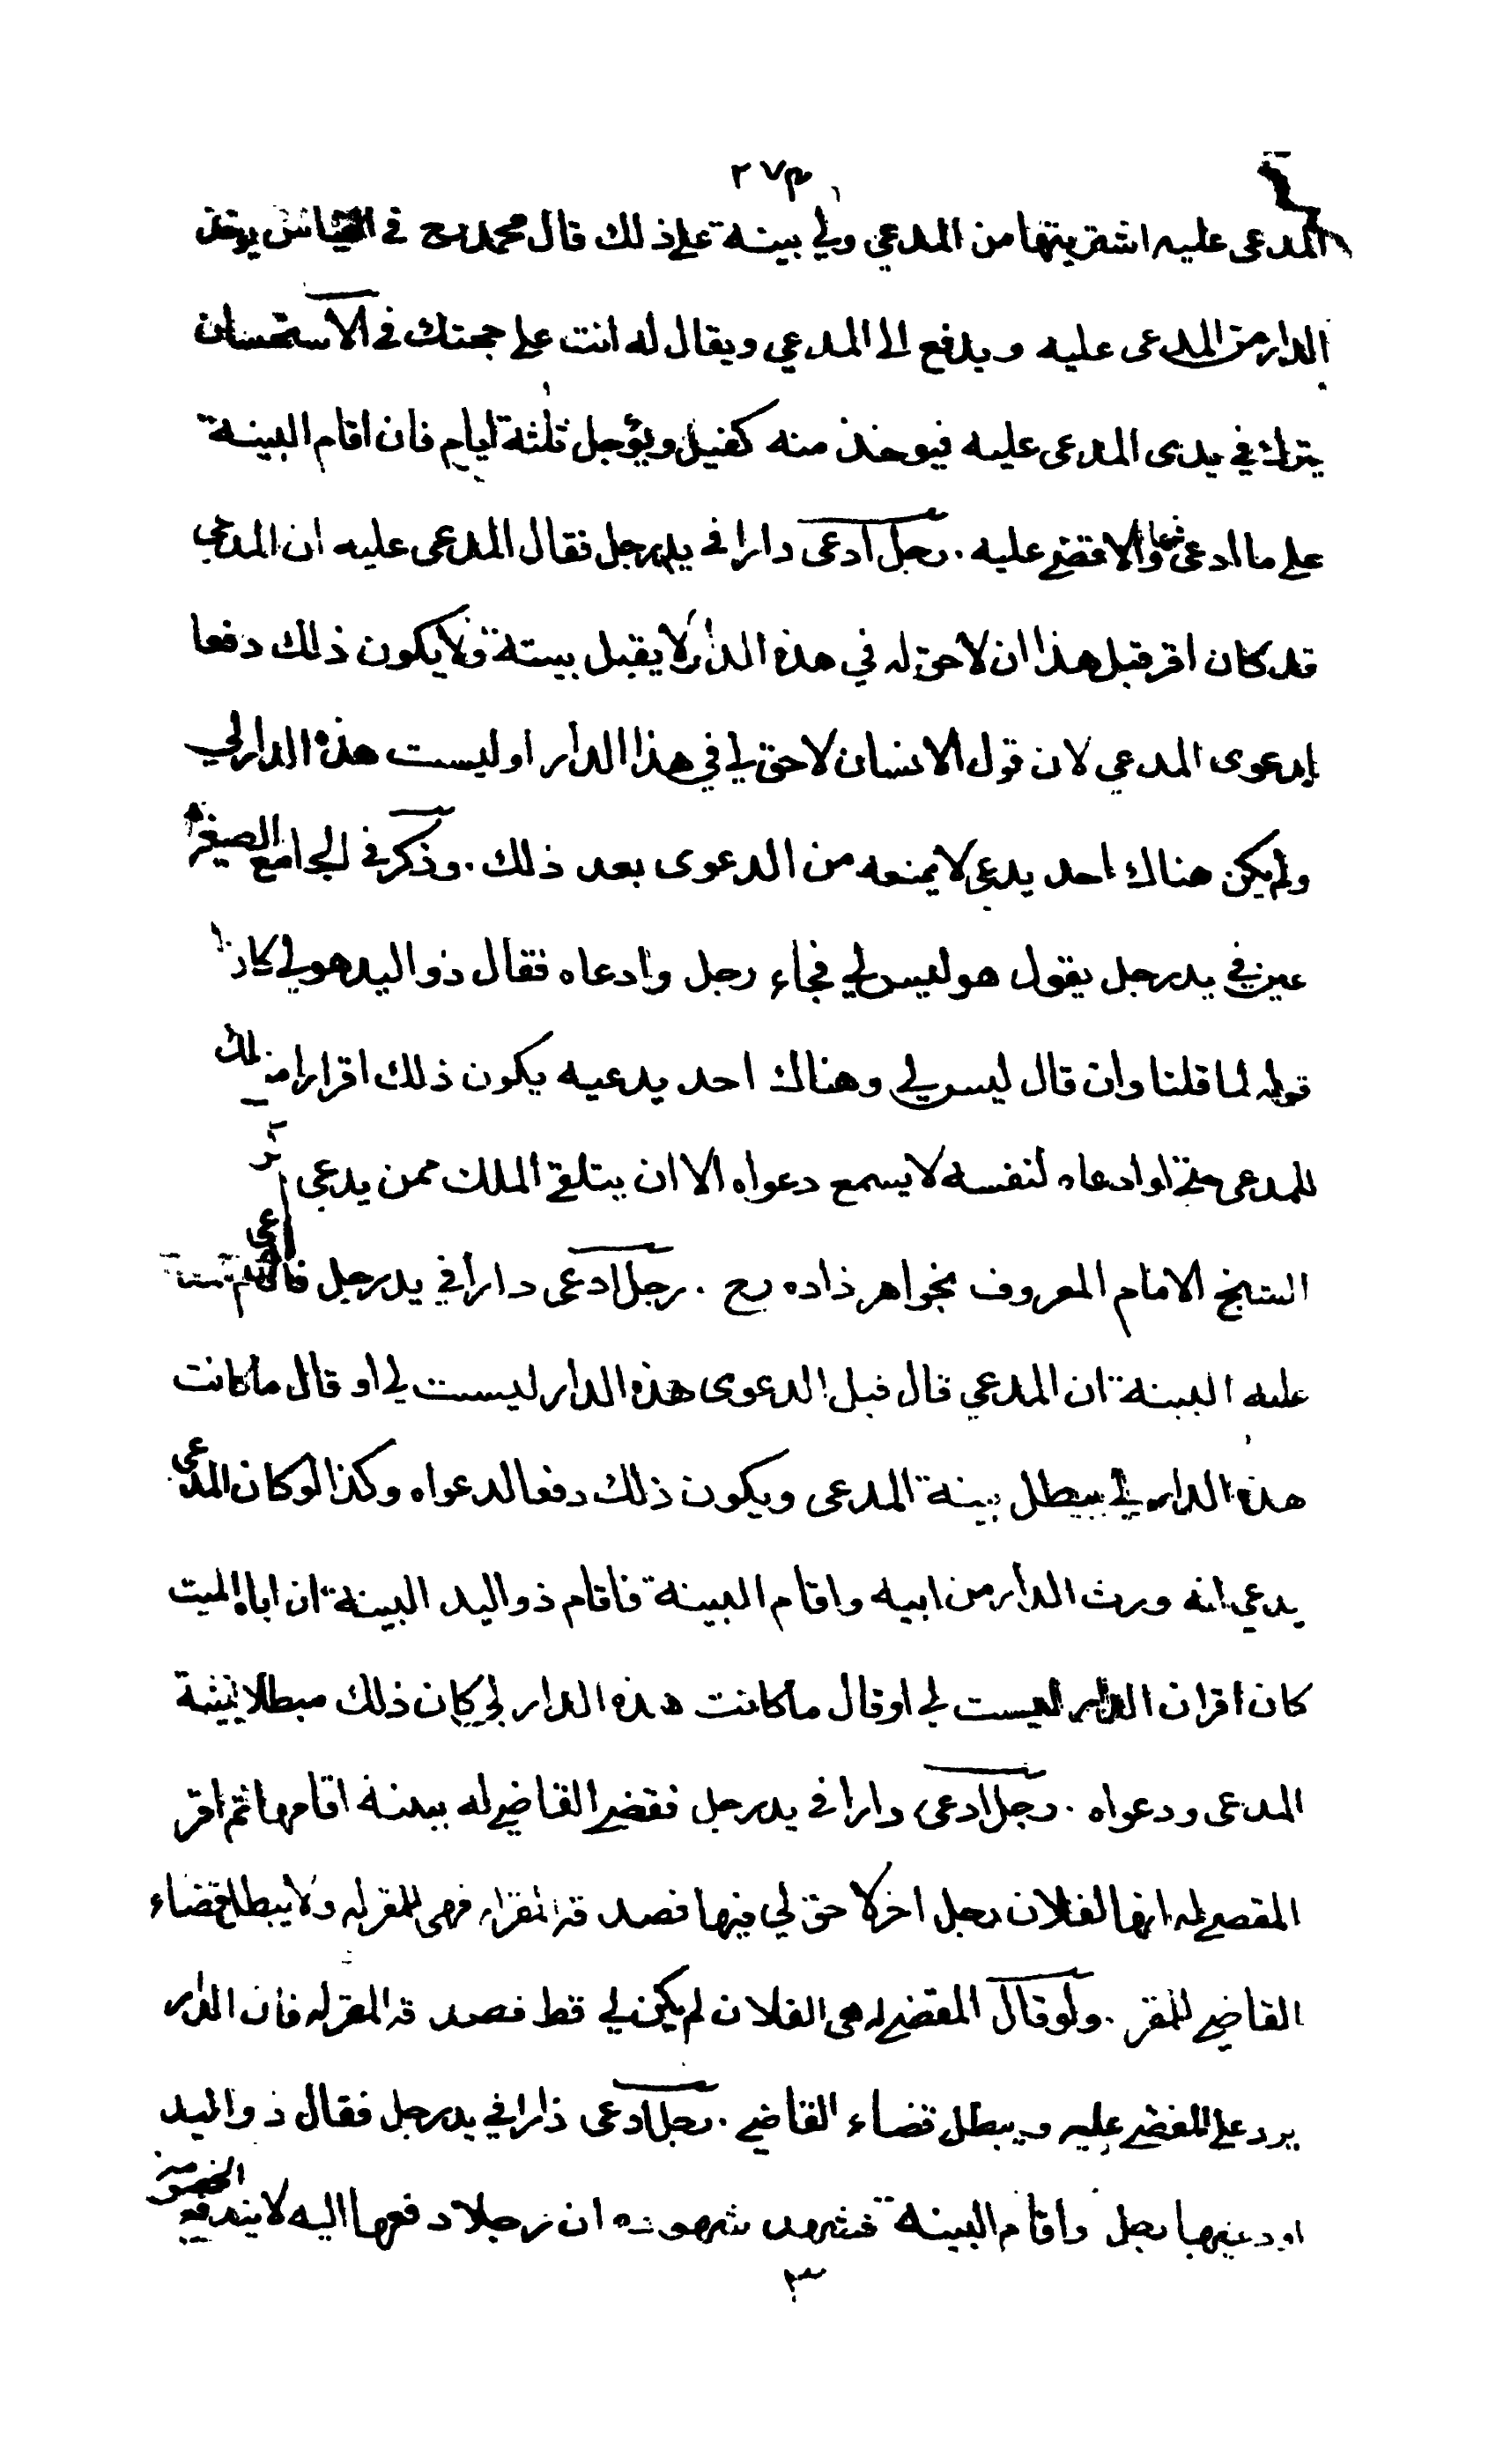 ٢٧٣
المدعى عليه اشتريتها من المدعي ولي بينة على ذلك قال محمد رح في القياس يوخذ
الدار من المدعى عليه ويدفع الى المدعي ويقال له انت على حجتك في الاستحسان
يترك في يدى المدعى عليه فيوخذ منه كفيل ويؤجل ثلثة ايام فان اقام البينة
على ما ادعى والا قضى عليه . رجل ادعى دارا في يد رجل فقال المدعى عليه ان المدعي
قد كان اقر قبل هذا ان لا حق له في هذه الدار لا يقبل بينته ولا يكون ذلك دفعا
لدعوى المدعي لان قول الانسان لا حق لي في هذا الدار او ليست هذه الدار لي
ولم يكن هناك احد يدعى لا يمنعه من الدعوى بعد ذلك . وذكر في الجامع الصغير
عين في يد رجل يقول هو ليس لي فجاء رجل وادعاه فقال ذو اليد هو لي كان
قوله لما قلنا وان قال ليس لي وهناك احد يدعيه يكون ذلك اقرارا منه
للمدعى حتى لو ادعاه لنفسه لا يسمع دعواه الا ان يتلقى الملك ممن يدعي
الشيخ الامام المعروف بخواهر زاده رح . رجل ادعى دارا في يد رجل فاقام
عليه البينة ان المدعي قال قبل الدعوى هذه الدار ليست لي او قال ما كانت
هذه الدار لي يبطل بينة المدعى ويكون ذلك دفعا لدعواه وكذا لو كان المدعى
يدعي انه ورث الدار من ابيه واقام البينة فاقام ذو اليد البينة ان اباه الميت
كان اقر ان الدار ليست لي او قال ما كانت هذه الدار لي كان ذلك مبطلا بينة
المدعى ودعواه . رجل ادعى دارا في يد رجل فقضى القاضي له ببينة اقامها ثم اقر
المقضى له انها لفلان رجل اخر لا حق لي فيها فصدقه المقر له فهى للمقر له ولا يبطل قضاء
القاضي للمقر . ولو قال المقضى له هى لفلان لم يكن لي قط فصدقه المقر له فان الدار
يرد على المقضى عليه ويبطل قضاء القاضي . رجل ادعى دارا في يد رجل فقال ذو اليد
اودعنيها رجل واقام البينة فشهد شهوده ان رجلا دفعها اليه لا يندفع الخصومة